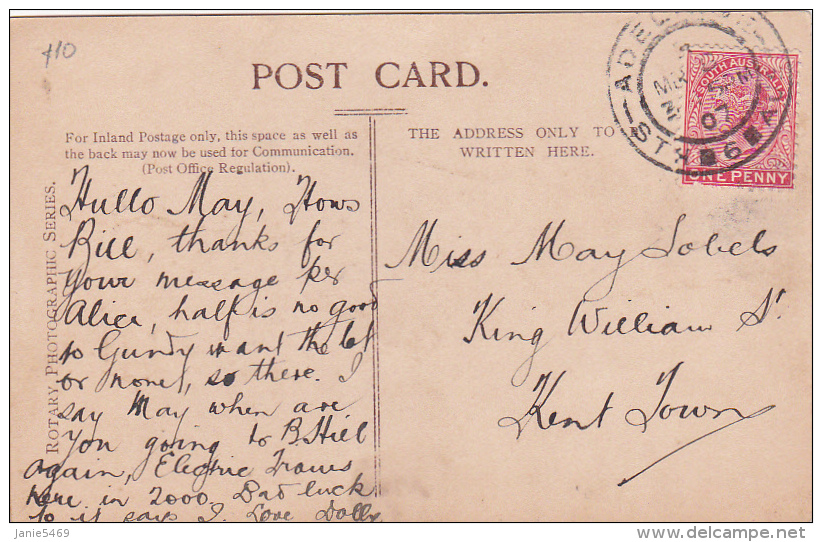 410
POST CARD.
For Inland Postage only, this space as well as
the back may now be used for Communication.
(Post Office Regulation).
THE ADDRESS ONLY TO
WRITTEN HERE.
ROTARY PHOTOGRAPHIC SERIES.
ADELAIDE
07
STH AUS
SOUTH AUSTRALIA
ONE PENNY
Hullo May, Hows
Bill, thanks for
your message per
Alice, half is no good
to Gundy want the lot
or none, so there. I
say May when are
you going to B. Hill
again, Electric Trams
here in 2000. Bad luck
to it says I. Love Dolly
Miss May Lobels
King William St
Kent Town
janie5469
delcampe.net